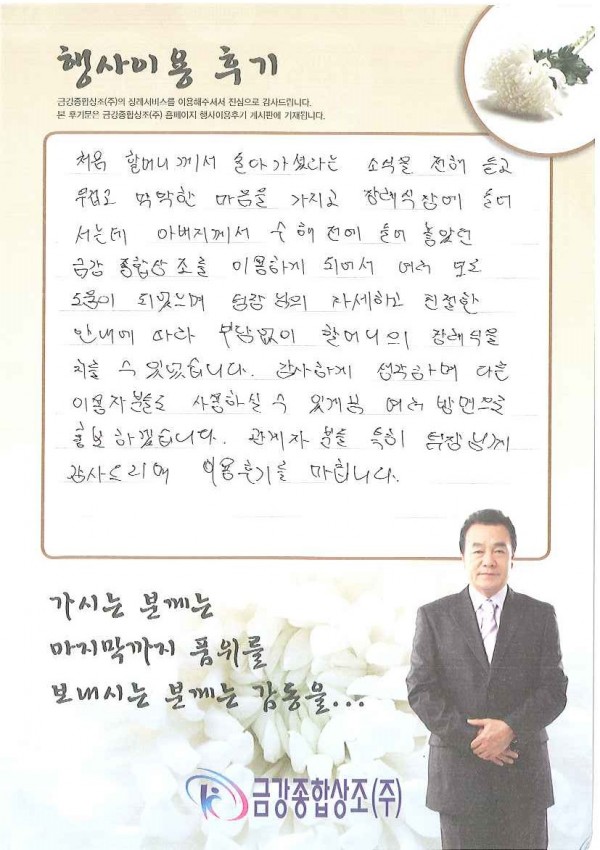 행사이용 후기
금강종합상조(주)의 장례서비스를 이용해주셔서 진심으로 감사드립니다.
본 후기문은 금강종합상조(주) 홈페이지 행사이용후기 게시판에 기재됩니다.
처음 할머니께서 돌아가셨다는 소식을 전해 듣고
무겁고 막막한 마음을 가지고 장례식장에 들어
서는데 아버지께서 수해 전에 들어 놓았던
금강 종합상조를 이용하게 되어서 여러 모로
도움이 되었으며 팀장님의 자세하고 친절한
안내에 따라 부담없이 할머니의 장례식을
치를 수 있었습니다. 감사하게 생각하며 다른
이용자분들도 사용하실 수 있게끔 여러 방면으로
홍보하겠습니다. 관계자 분들 특히 팀장님께
감사드리며 이용후기를 마칩니다.
가시는 분께는
마지막까지 품위를
보내시는 분께는 감동을...
금강종합상조(주)